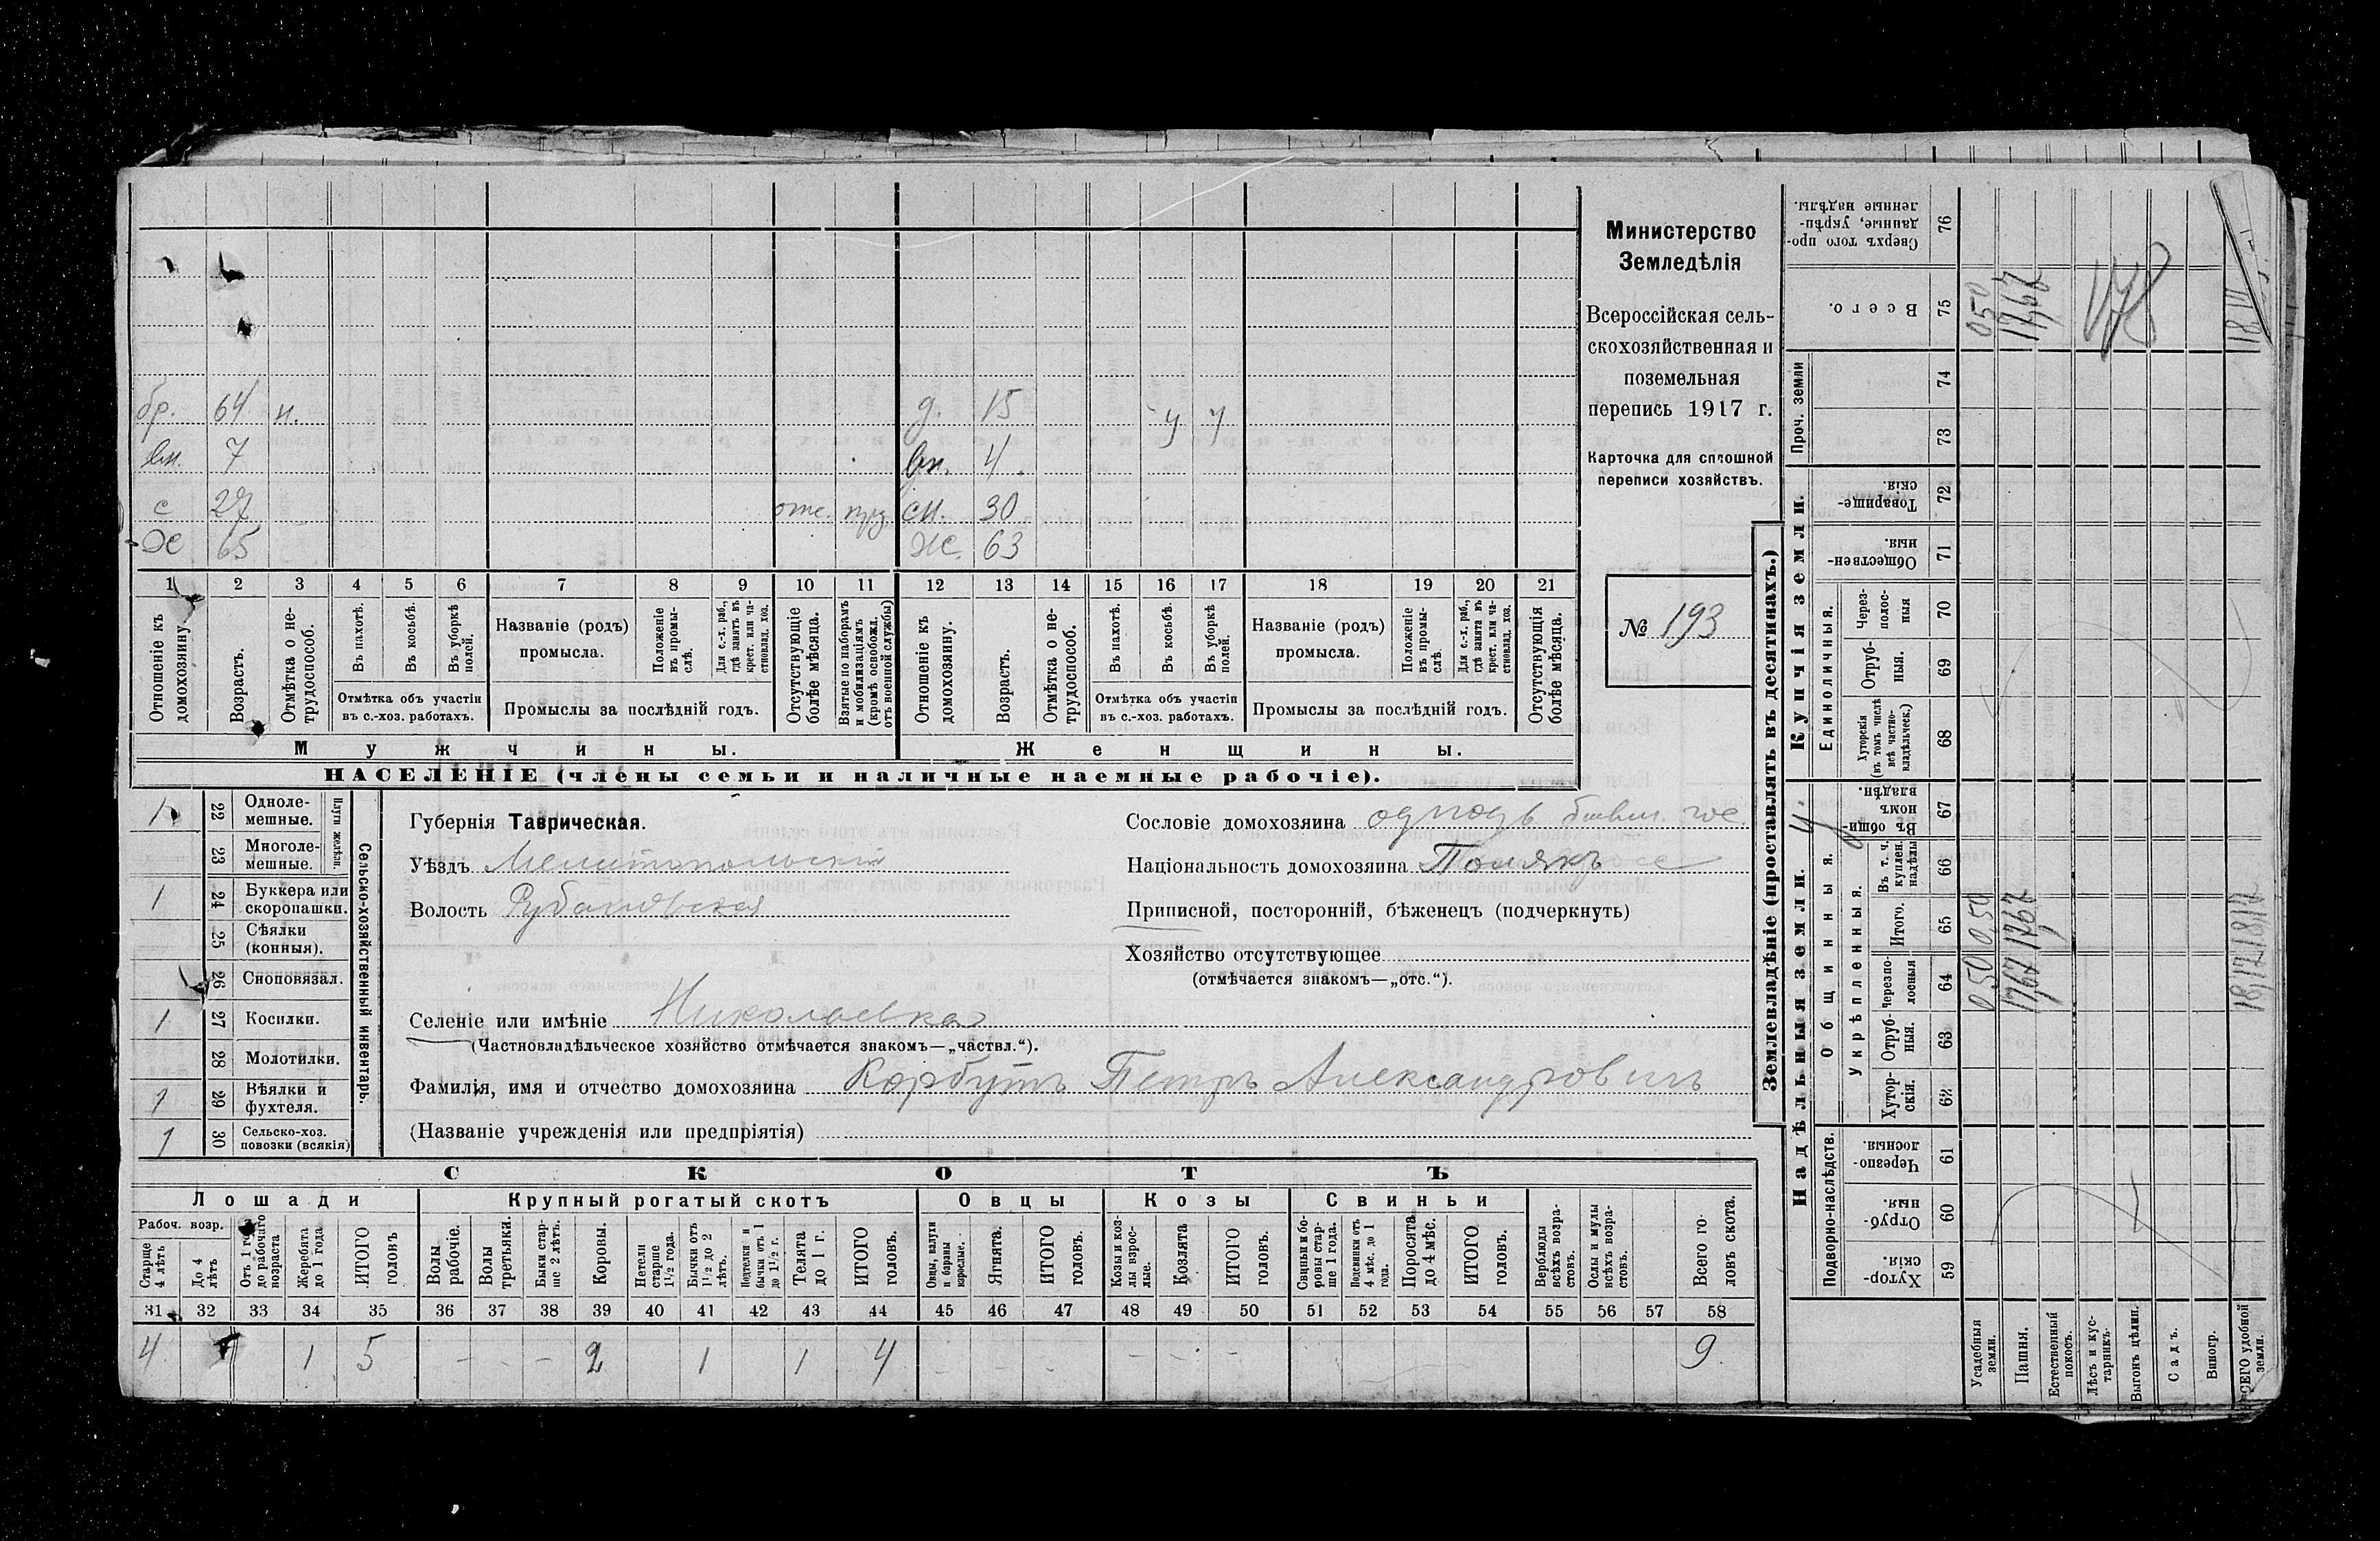 Министерство
Земледѣлія
Всероссійская сель-
скохозяйственная и
поземельная
перепись 1917 г.
Карточка для сплошной
переписи хозяйствъ.
№ 193
бр. 64 н. д. 15 у у
вн. 7 вн. 4
с 27 отс. сн. 30
Х 65 ж. 63
1 2 3 4 5 6 7 8 9 10 11 12 13 14 15 16 17 18 19 20 21
Отношеніе къ домохозяину.
Возрастъ.
Отмѣтка о не-трудоспособ.
Въ пахотѣ.
Въ косьбѣ.
Въ уборкѣ полей.
Отмѣтка объ участіи
въ с.-хоз. работахъ.
Названіе (родъ)
промысла.
Положеніе въ промы-слѣ.
Для с.-х. раб., гдѣ занятъ въ крест. или ча-стновлад. хоз.
Промыслы за послѣдній годъ.
Отсутствующіе болѣе мѣсяца.
Взятые по наборамъ и мобилизаціямъ (кромѣ освобожд. отъ военной службы)
Отношеніе къ домохозяину.
Возрастъ.
Отмѣтка о не-трудоспособ.
Въ пахотѣ.
Въ косьбѣ.
Въ уборкѣ полей.
Отмѣтка объ участіи
въ с.-хоз. работахъ.
Названіе (родъ)
промысла.
Положеніе въ промы-слѣ.
Для с.-х. раб., гдѣ занята въ крест. или ча-стновлад. хоз.
Промыслы за послѣдній годъ.
Отсутствующія болѣе мѣсяца.
Мужчины. Женщины.
НАСЕЛЕНІЕ (члены семьи и наличные наемные рабочіе).
Сельско-хозяйственный инвентарь.
Плуги желѣзн.
1 22 Одноле-мешные.
23 Многоле-мешные.
1 24 Буккера или скоропашки.
25 Сѣялки (конныя).
26 Сноповязал.
1 27 Косилки.
28 Молотилки.
1 29 Вѣялки и фухтеля.
1 30 Сельско-хоз. повозки (всякія)
Губернія Таврическая.
Уѣздъ Мелитопольскій
Волость Рубановская
Сословіе домохозяина
Національность домохозяина Полякъ
Приписной, посторонній, бѣженецъ (подчеркнуть)
Хозяйство отсутствующее
(отмѣчается знакомъ—„отс.“).
Селеніе или имѣніе Николаевка
(Частновладѣльческое хозяйство отмѣчается знакомъ—„частвл.“).
Фамилія, имя и отчество домохозяина Корбутъ Петръ Александровичъ
(Названіе учрежденія или предпріятія)
СКОТЪ
Лошади Крупный рогатый скотъ Овцы Козы Свиньи
Рабоч. возр.
Старше 4 лѣтъ
До 4 лѣтъ
Отъ 1 г. до рабочаго возраста
Жеребята до 1 года
ИТОГО головъ
Волы рабочіе.
Волы третьяки.
Быки стар-ше 2 лѣтъ.
Коровы.
Нетели старше 1½ года.
Бычки отъ 1½ до 2 лѣтъ.
Подтелки и бычки отъ 1 до 1½ г.
Телята до 1 г.
ИТОГО головъ.
Овцы, валухи и бараны взрослые.
Ягнята.
ИТОГО головъ.
Козы и коз-лы взрос-лые.
Козлята
ИТОГО головъ.
Свиньи и бо-ровы стар-ше 1 года.
Подсвинки отъ 4 мѣс. до 1 года.
Поросята до 4 мѣс.
ИТОГО головъ.
Верблюды всѣхъ возра-стовъ.
Ослы и мулы всѣхъ возра-стовъ.
Всего го-ловъ скота.
31 32 33 34 35 36 37 38 39 40 41 42 43 44 45 46 47 48 49 50 51 52 53 54 55 56 57 58
4 1 5 - - - 2 1 1 4 - - - - - - 9
Землевладѣніе (проставлять въ десятинахъ.)
Надѣльныя земли. Купчія земли.
Общинныя. Единоличныя. Проч. земли
Подворно-наслѣдств. Укрѣпленныя.
Сверхъ того про-данные, укрѣп-ленные надѣлы. 76
Всего. 75 0 50 17,67 18,17
74
73
Товарище-скія. 72
Обществен-ныя. 71
Через-полос-ныя 70
Отруб-ныя. 69
Хуторскія (въ томъ числѣ всѣ частно-владѣльческ.) 68
Въ общин-номъ владѣн. 67
Въ т. ч. куплен. надѣлы 66
Итого. 65 0,50 17,67 18,17
Черезпо-лосныя 64 0 50 17,67 18,17
Отруб-ныя. 63
Хутор-скія. 62
Черезпо-лосныя. 61
Отруб-ныя. 60
Хутор-скія. 59
Усадебныя земли.
Пашня.
Естественный покосъ.
Лѣсъ и кус-тарникъ.
Выгонъ цѣлин.
Садъ.
Виногр.
ВСЕГО удобной земли.